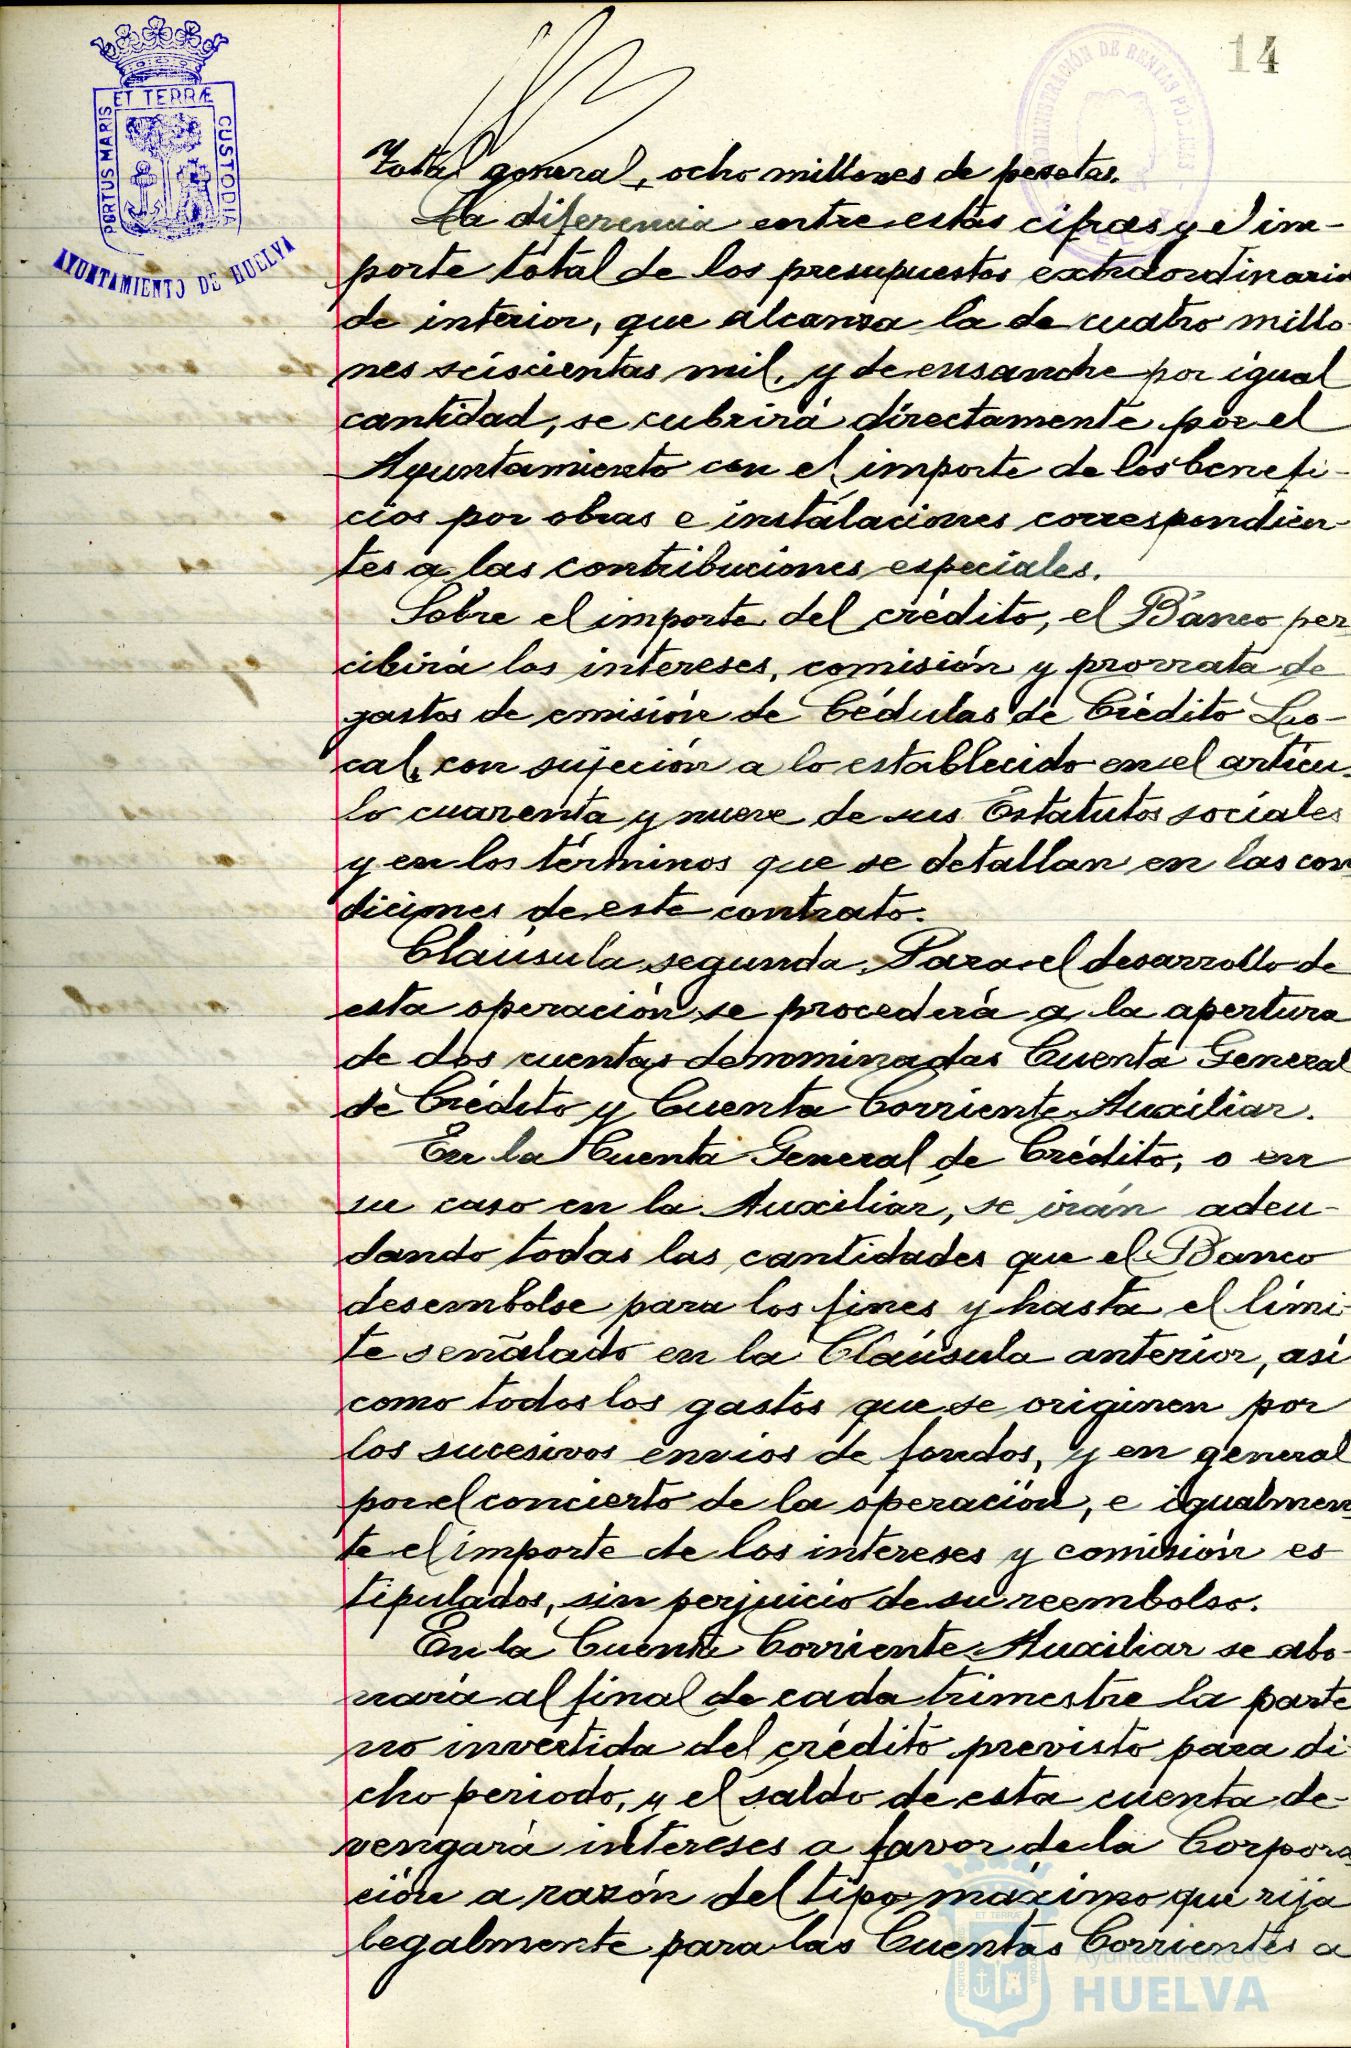 14
ET TERRÆ
PORTUS MARIS
CUSTODIA
AYUNTAMIENTO DE HUELVA
ADMINISTRACIÓN DE RENTAS PÚBLICAS
Total general, ocho millones de pesetas.
La diferencia entre estas cifras y el im-
porte total de los presupuestos extraordinario
de interior, que alcanza la de cuatro millo-
nes seiscientas mil, y de ensanche por igual
cantidad, se cubrirá directamente por el
Ayuntamiento con el importe de los benefi-
cios por obras e instalaciones correspondien-
tes a las contribuciones especiales.
Sobre el importe del crédito, el Banco per
cibirá los intereses, comisión y prorrata de
gastos de emisión de Cédulas de Crédito Lo-
cal, con sujeción a lo establecido en el artícu-
lo cuarenta y nueve de sus Estatutos sociales
y en los términos que se detallan en las con
diciones de este contrato.
Cláusula segunda. Para el desarrollo de
esta operación se procederá a la apertura
de dos cuentas denominadas Cuenta General
de Crédito y Cuenta Corriente Auxiliar.
En la Cuenta General de Crédito, o en
su caso en la Auxiliar, se irán adeu-
dando todas las cantidades que el Banco
desembolse para los fines y hasta el lími-
te señalado en la Cláusula anterior, así
como todos los gastos que se originen por
los sucesivos envios de fondos, y en general
por el concierto de la operación, e igualmen
te el importe de los intereses y comisión es
tipulados, sin perjuicio de su reembolso.
En la Cuenta Corriente Auxiliar se abo-
nará al final de cada trimestre la parte
no invertida del crédito previsto para di
cho periodo, y el saldo de esta cuenta de-
vengará intereses a favor de la Corpora
ción a razón del tipo máximo que rija
legalmente para las Cuentas Corrientes a
Ayuntamiento de
HUELVA